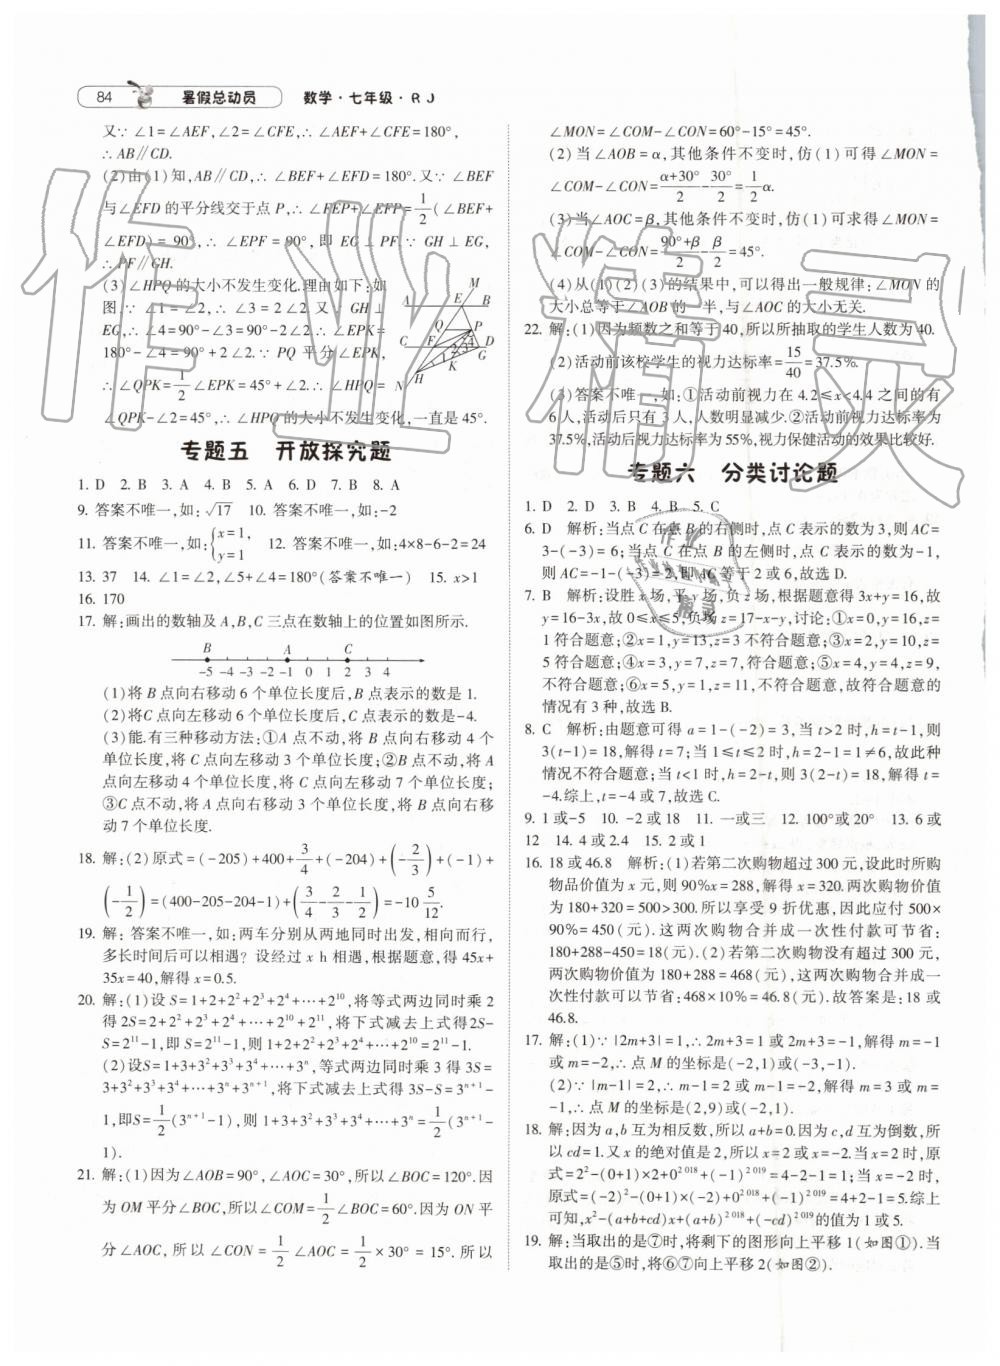 84 暑假总动员 数学·七年级·RJ
又∵∠1=∠AEF,∠2=∠CFE,∴∠AEF+∠CFE=180°,
∴AB∥CD.
(2)由(1)知,AB∥CD,∴∠BEF+∠EFD=180°.又∵∠BEF
与∠EFD的平分线交于点P,∴∠FEP+∠EFP=1/2(∠BEF+
∠EFD)=90°,∴∠EPF=90°,即 EG⊥PF.∵GH⊥EG,
∴PF∥GH.
(3)∠HPQ的大小不发生变化.理由如下:如
图.∵∠1=∠2,∴∠3=2∠2.又∵GH⊥
EG,∴∠4=90°-∠3=90°-2∠2.∴∠EPK=
180°-∠4=90°+2∠2.∵PQ平分∠EPK,
∴∠QPK=1/2∠EPK=45°+∠2.∴∠HPQ=
∠QPK-∠2=45°,∴∠HPQ的大小不发生变化,一直是45°.
M
A E B
Q P
C F D
1 2 3 4 G
K
H
N
专题五 开放探究题
1. D 2. B 3. A 4. B 5. A 6. D 7. B 8. A
9. 答案不唯一,如:√17 10. 答案不唯一,如:-2
11. 答案不唯一,如:{x=1, y=1 12. 答案不唯一,如:4×8-6-2=24
13. 37 14. ∠1=∠2,∠5+∠4=180°(答案不唯一) 15. x>1
16. 170
17. 解:画出的数轴及A,B,C三点在数轴上的位置如图所示.
B A C
-5 -4 -3 -2 -1 0 1 2 3 4
(1)将B点向右移动6个单位长度后,B点表示的数是1.
(2)将C点向左移动6个单位长度后,C点表示的数是-4.
(3)能.有三种移动方法:①A点不动,将B点向右移动4个
单位长度,将C点向左移动3个单位长度;②B点不动,将A
点向左移动4个单位长度,将C点向左移动7个单位长度;
③C点不动,将A点向右移动3个单位长度,将B点向右移
动7个单位长度.
18. 解:(2)原式=(-205)+400+3/4+(-204)+(-2/3)+(-1)+
(-1/2)=(400-205-204-1)+(3/4-2/3-1/2)=-10 5/12.
19. 解:答案不唯一,如:两车分别从两地同时出发,相向而行,
多长时间后可以相遇?设经过x h相遇,根据题意,得45x+
35x=40,解得x=0.5.
20. 解:(1)设S=1+2+2²+2³+2⁴+…+2¹⁰,将等式两边同时乘2
得2S=2+2²+2³+2⁴+…+2¹⁰+2¹¹,将下式减去上式得2S-
S=2¹¹-1,即S=2¹¹-1,则1+2+2²+2³+2⁴+…+2¹⁰=2¹¹-1.
(2)设S=1+3+3²+3³+3⁴+…+3ⁿ,等式两边同时乘3得3S=
3+3²+3³+3⁴+…+3ⁿ+3ⁿ⁺¹,将下式减去上式得3S-S=3ⁿ⁺¹-
1,即S=1/2(3ⁿ⁺¹-1),则1+3+3²+3³+3⁴+…+3ⁿ=1/2(3ⁿ⁺¹-
1).
21. 解:(1)因为∠AOB=90°,∠AOC=30°,所以∠BOC=120°.因
为OM平分∠BOC,所以∠COM=1/2∠BOC=60°.因为ON平
分∠AOC,所以∠CON=1/2∠AOC=1/2×30°=15°.所以
∠MON=∠COM-∠CON=60°-15°=45°.
(2)当∠AOB=α,其他条件不变时,仿(1)可得∠MON=
∠COM-∠CON=(α+30°)/2-30°/2=1/2α.
(3)当∠AOC=β,其他条件不变时,仿(1)可求得∠MON=
∠COM-∠CON=(90°+β)/2-β/2=45°.
(4)从(1)(2)(3)的结果中,可以得出一般规律:∠MON的
大小总等于∠AOB的一半,与∠AOC的大小无关.
22. 解:(1)因为频数之和等于40,所以所抽取的学生人数为40.
(2)活动前该校学生的视力达标率=15/40=37.5%.
(3)答案不唯一,如:①活动前视力在4.2≤x<4.4之间的有
6人,活动后只有3人,人数明显减少.②活动前视力达标率为
37.5%,活动后视力达标率为55%,视力保健活动的效果比较好.
专题六 分类讨论题
1. D 2. D 3. B 4. B 5. C
6. D 解析:当点C在点B的右侧时,点C表示的数为3,则AC=
3-(-3)=6;当点C在点B的左侧时,点C表示的数为-1,
则AC=-1-(-3)=2,即AC等于2或6,故选D.
7. B 解析:设胜x场,平y场,负z场,根据题意得3x+y=16,故
y=16-3x,故0≤x≤5,负场z=17-x-y,讨论:①x=0,y=16,z=
1符合题意;②x=1,y=13,z=3不符合题意;③x=2,y=10,z=
5符合题意;④x=3,y=7,z=7,符合题意;⑤x=4,y=4,z=9,
不符合题意;⑥x=5,y=1,z=11,不符合题意,故符合题意的
情况有3种,故选B.
8. C 解析:由题意可得a=1-(-2)=3,当t>2时,h=t-1,则
3(t-1)=18,解得t=7;当1≤t≤2时,h=2-1=1≠6,故此种
情况不符合题意;当t<1时,h=2-t,则3(2-t)=18,解得t=
-4.综上,t=-4或7,故选C.
9. 1或-5 10. -2或18 11. 一或三 12. 100°或20° 13. 6或
12 14. 4或2.4 15. 2或1
16. 18或46.8 解析:(1)若第二次购物超过300元,设此时所购
物品价值为x元,则90%x=288,解得x=320.两次购物价值
为180+320=500>300.所以享受9折优惠,因此应付500×
90%=450(元).这两次购物合并成一次性付款可节省:
180+288-450=18(元).(2)若第二次购物没有超过300元,
两次购物价值为180+288=468(元),这两次购物合并成一
次性付款可以节省:468×10%=46.8(元).故答案是:18或
46.8.
17. 解:(1)∵|2m+3|=1,∴2m+3=1或2m+3=-1,解得m=-1
或m=-2,∴点M的坐标是(-2,1)或(-3,-1).
(2)∵|m-1|=2,∴m-1=2或m-1=-2,解得m=3或m=
-1,∴点M的坐标是(2,9)或(-2,1).
18. 解:因为a,b互为相反数,所以a+b=0.因为c,d互为倒数,所
以cd=1.又x的绝对值是2,所以x=2或x=-2.当x=2时,原
式=2²-(0+1)×2+0²⁰¹⁸+(-1)²⁰¹⁹=4-2-1=1;当x=-2时,
原式=(-2)²-(0+1)×(-2)+0²⁰¹⁸+(-1)²⁰¹⁹=4+2-1=5.综上
可知,x²-(a+b+cd)x+(a+b)²⁰¹⁸+(-cd)²⁰¹⁹的值为1或5.
19. 解:当取出的是⑦时,将剩下的图形向上平移1(如图①).当
取出的是⑤时,将⑥⑦向上平移2(如图②).
作业精灵